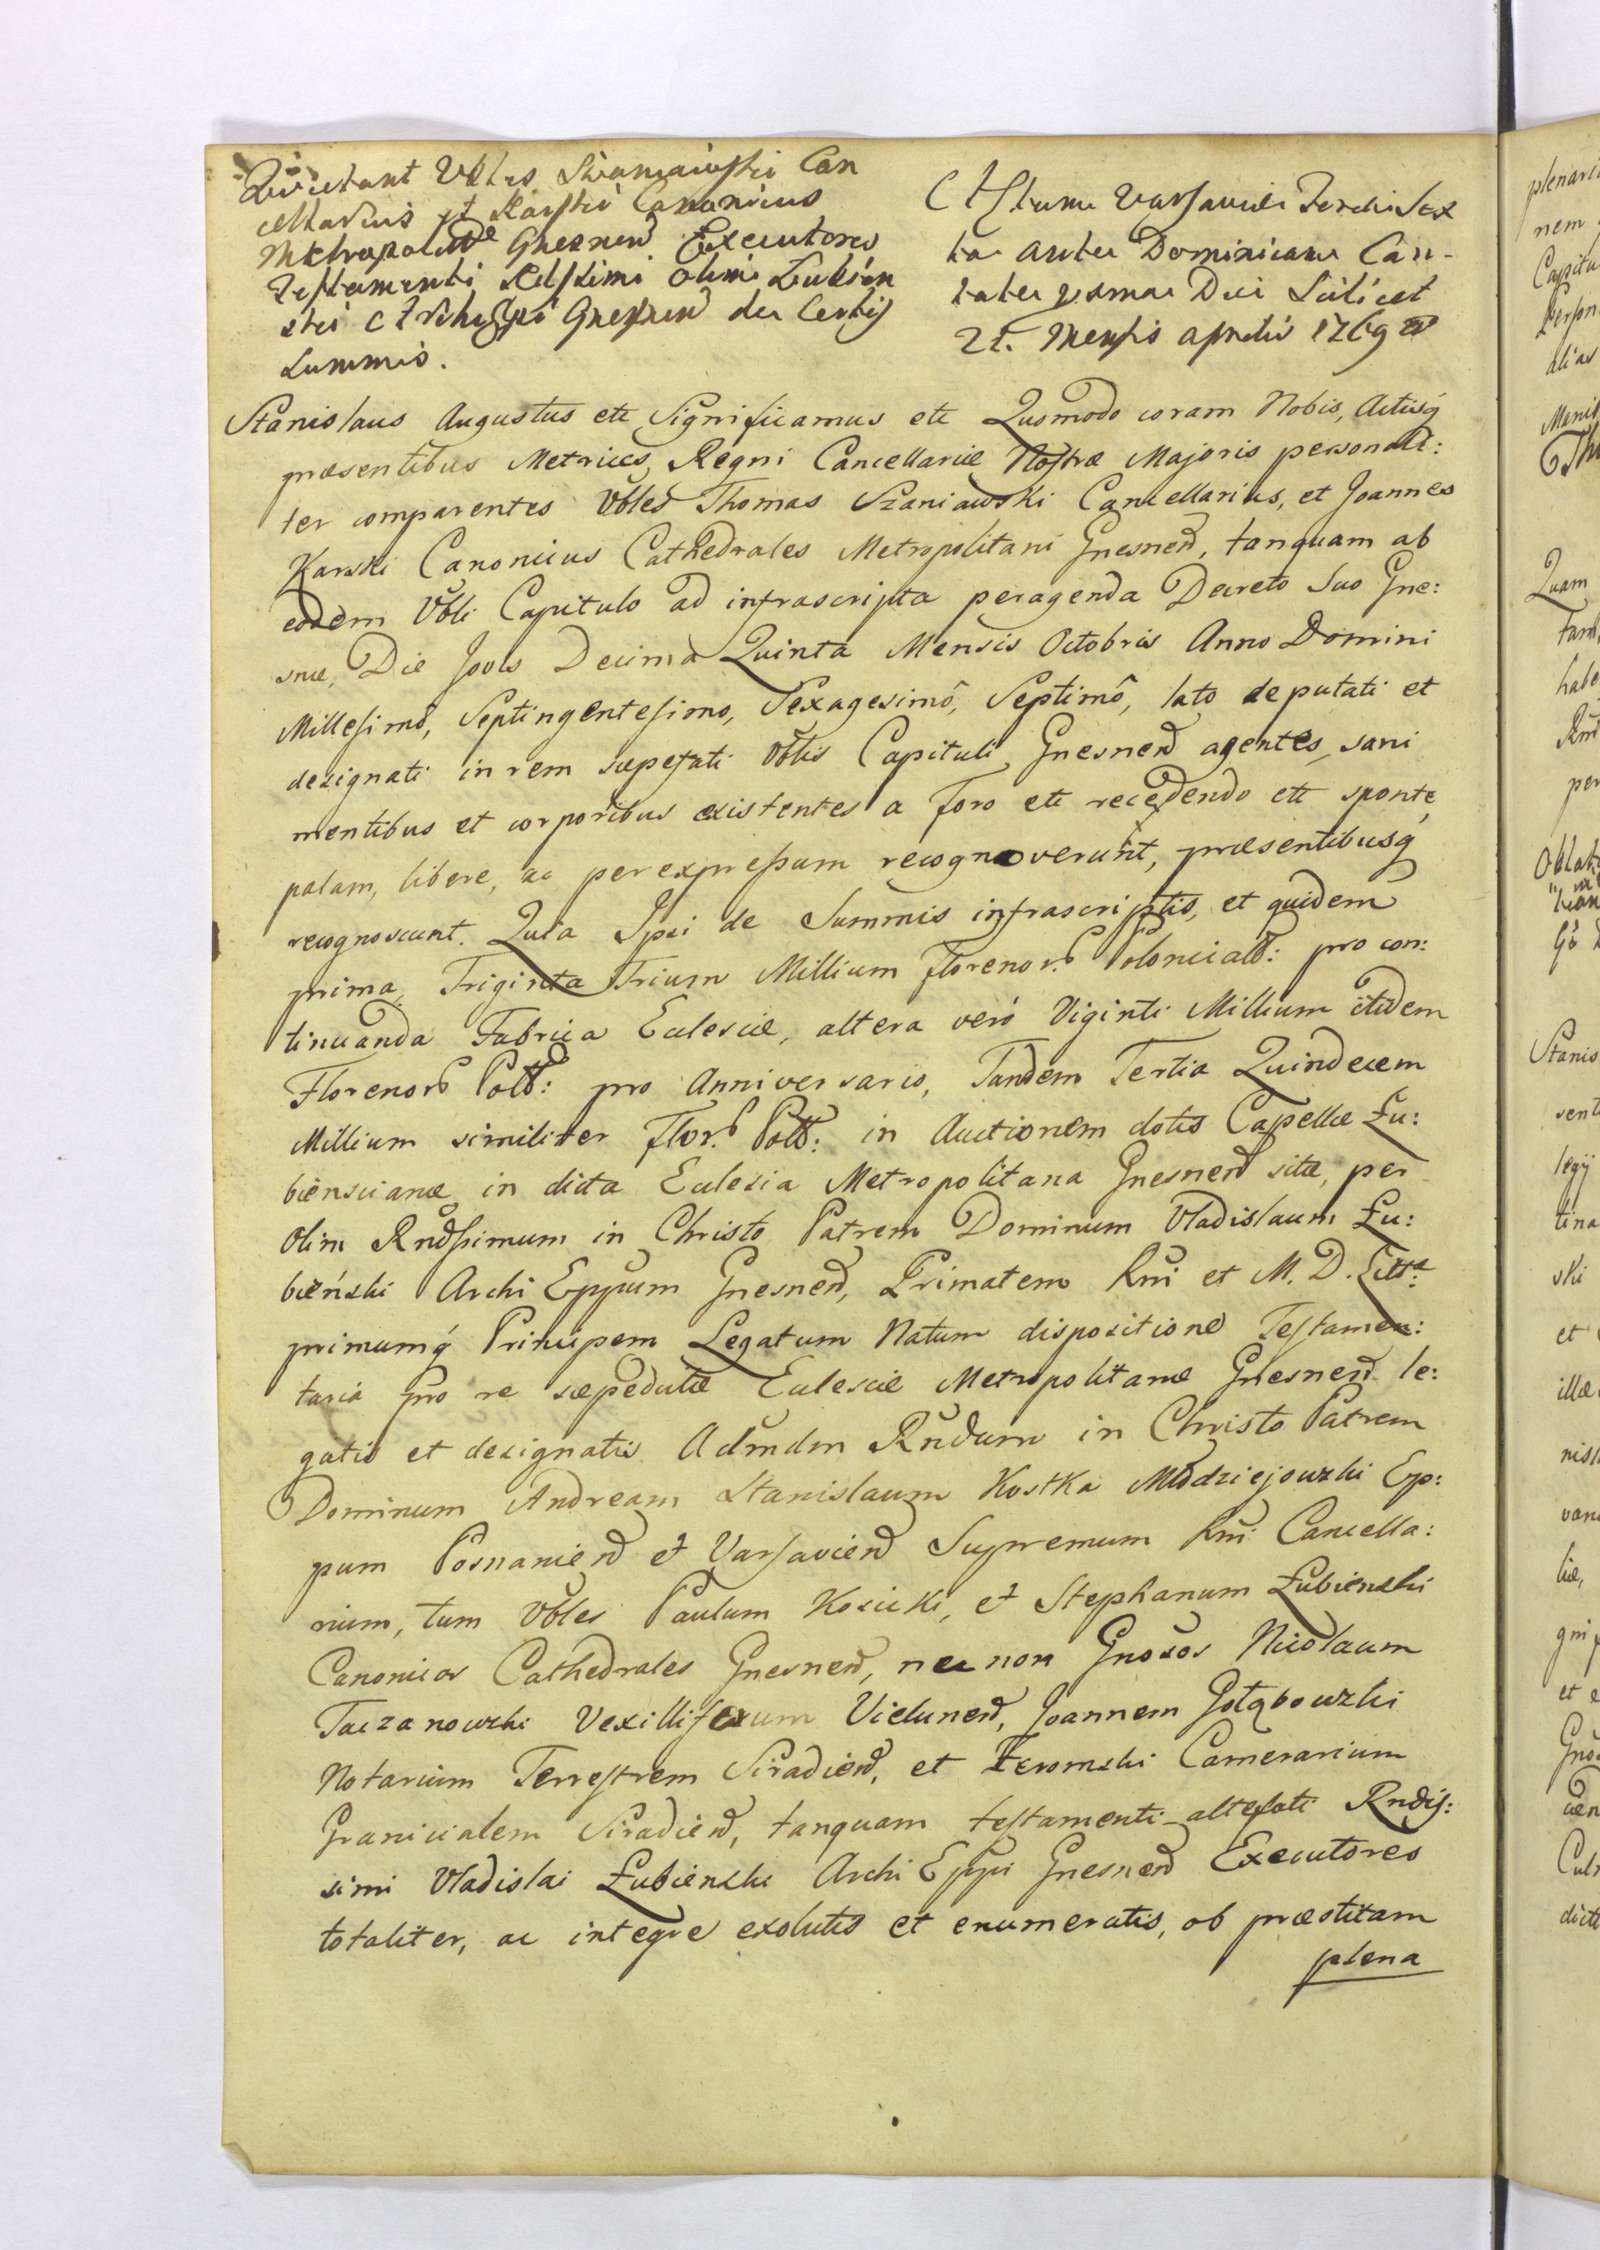 Quietant Vbles Szaniawski Can
cellarius et Karski Canonicus
Metropolitae Gnesnen Executores
Testamenti Celssimi olim Łubień
ski Archieppi Gnesnen de Certis
summis.
Actum Varsaviae Feria Sex
ta ante Dominicam Can-
tate pxma Die Scilicet
21. Mensis aprilis 1769
Stanislaus Augustus etc Significamus etc Quomodo coram Nobis, Actisq
praesentibus Metrices Regni Cancellariae Nostrae Majoris personali:
ter comparentes Vbles Thomas Szaniawski Cancellarius, et Joannes
Karski Canonicus Cathedrales Metropolitani Gnesnen, tanquam ab
eodem Vbli Capitulo ad infrascripta peragenda Decreto suo Gne:
snae, Die Jovis Decima Quinta Mensis Octobris Anno Domini
Millesimô, Septingentesimo, Sexagesimô, Septimô, lato deputati et
designati in rem saepefati Vblis Capituli Gnesnen agentes, sani
mentibus et corporibus existentes a foro etc recedendo etc sponte,
palam, libere, ac per expressum recognoverunt, praesentibusq
recognoscunt. Quia Ipsi de Summis infrascriptis, et quidem
prima, Triginta Trium Millium florenor. Polonicall: pro con:
tinuanda Fabrica Eclesiae, altera vero Viginti Millium itidem
Florenor Poll: pro Anniversario, Tandem Tertia Quindecem
Millium similiter flor. Poll: in Auctionem dotis Capellae Łu:
bienscianae in dicta Eclesia Metropolitana Gnesnen sitae, per
Olim Rndssimum in Christo Patrem Dominum Vladislaum Łu:
bieński Archi Eppum Gnesnen, Primatem Rni et M. D. Litt:
primumq Principem Legatum Natum dispositione Testamen:
taria pro re saepedictae Eclesiae Metropolitanae Gnesnen le:
gatis et designatis Admdm Rndum in Christo Patrem
Dominum Andream Stanislaum Kostka Młodziejowski Ep:
pum Posnanien et Varsavien Supremum Rni Cancella:
rium, tum Vbles Paulum Kosicki, et Stephanum Łubienski
Canonicos Cathedrales Gnesnen, nec non Gnosos Nicolaum
Taczanowski Vexilliferum Vielunen, Joannem Gołąbowski
Notarium Terrestrem Siradien, et Żeromski Camerarium
Granicialem Siradien, tanquam testamenti altefati Rndis:
simi Vladislai Łubienski Archi Eppi Gnesnen Executores
totaliter, ac integre exolutis et enumeratis, ob praestitam
plena